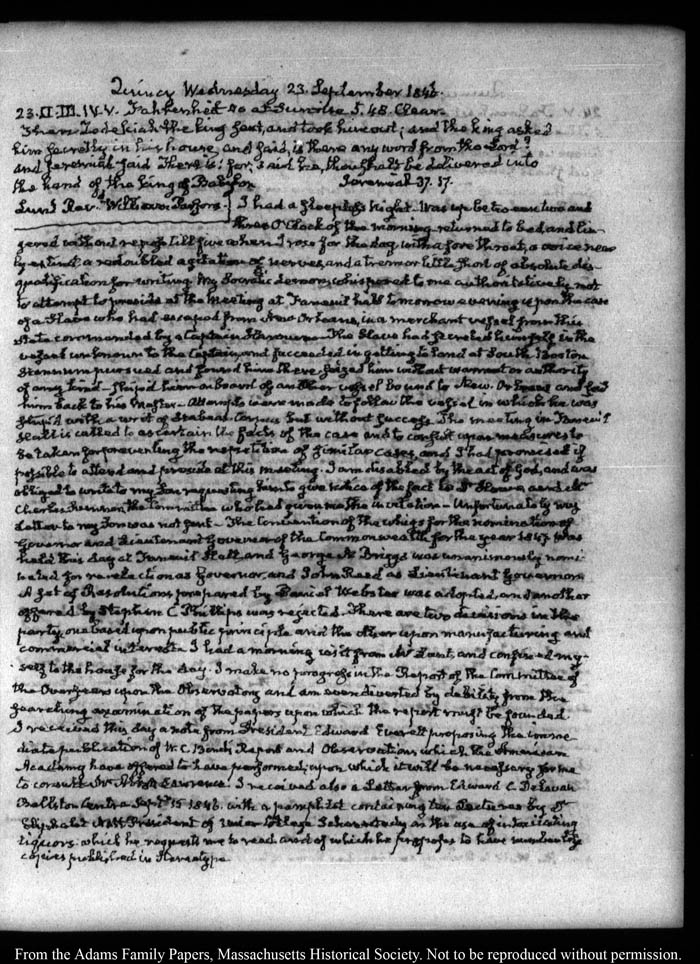 Quincy Wednesday 23. September 1846.
23. II. III. IV. V. Fahrenheit 50 at Sunrise 5.48. Clear.
Then Zedekiah the king sent, and took him out; and the king asked
him secretly in his house, and said, is there any word from the Lord?
and Jeremiah said There is: for, said he, thou shalt be delivered into
the hand of the king of Babylon Jeremiah 37. 17.
Lunt Revd William Parsons. I had a sleepless Night. Was up between two and
three O'Clock of the morning returned to bed and lin-
gered without repose till five when I rose for the day, with a sore throat, a voice near
ly extinct a redoubled agitation of nerves, and a tremor little short of absolute dis-
qualification for writing. My Socratic demon whispered to me authoritatively not
to attempt to preside at the Meeting at Faneuil hall tomorrow evening upon the case
of a Slave who had escaped from New Orleans, in a merchant vessel from this
State commanded by a Captain Hannum. The Slave had secreted himself in the
vessel unknown to the Captain, and succeeded in getting to land at South Boston
Hannum pursued and found him there, seized him without warrant or authority
of any kind – shipped him on board of another vessel bound to New Orleans and sent
him back to his Master – Attempts were made to follow the vessel in which he was
shipped with a writ of Habeas Corpus but without success. The meeting in Faneuil
Hall is called to ascertain the facts of the case and to consult upon measures to
be taken for preventing the repetition of similar cases, and I had promised if
possible to attend and preside at this meeting. I am disabled by the act of God, and was
obliged to write to my Son requesting him to give notice of the fact to Dr Howe, and Mr
Charles Sumner the Committee who had given me the invitation – Unfortunately my
Letter to my Son was not sent – The Convention of the whigs for the nomination of
Governor and Lieutenant Governor of the Commonwealth for the year 1847 was
held this day at Faneuil Hall, and George N. Briggs was unanimously nomi-
nated for re-election as Governor, and John Reed as Lieutenant Governor
A set of Resolutions prepared by Daniel Webster was adopted, and another
offered by Stephen C. Phillips was rejected. There are two divisions in the
party, one based upon public principle and the other upon manufacturing and
commercial interests. I had a morning visit from Mr Lunt, and confined my-
self to the house for the day. I make no progress in the Report of the Committee of
the Overseers upon the Observatory and am even diverted by debility from the
searching examination of the papers upon which the report must be founded
I received this day a note from President Edward Everett proposing the imme
diate publication of W. C. Bond's Report and Observations which the American
Academy have offered to have performed; upon which it will be necessary for me
to consult Mr Abbott Lawrence. I received also a Letter from Edward C. Delavan
Ballston Centre Septr 15 1846. with a pamphlet containing ten Lectures by Dr
Eliphalet Nott President of Union College Schenectady on the use of intoxicating
liquors. which he requests me to read and of which he proposes to have
copies published in Stereotype.
From the Adams Family Papers, Massachusetts Historical Society. Not to be reproduced without permission.